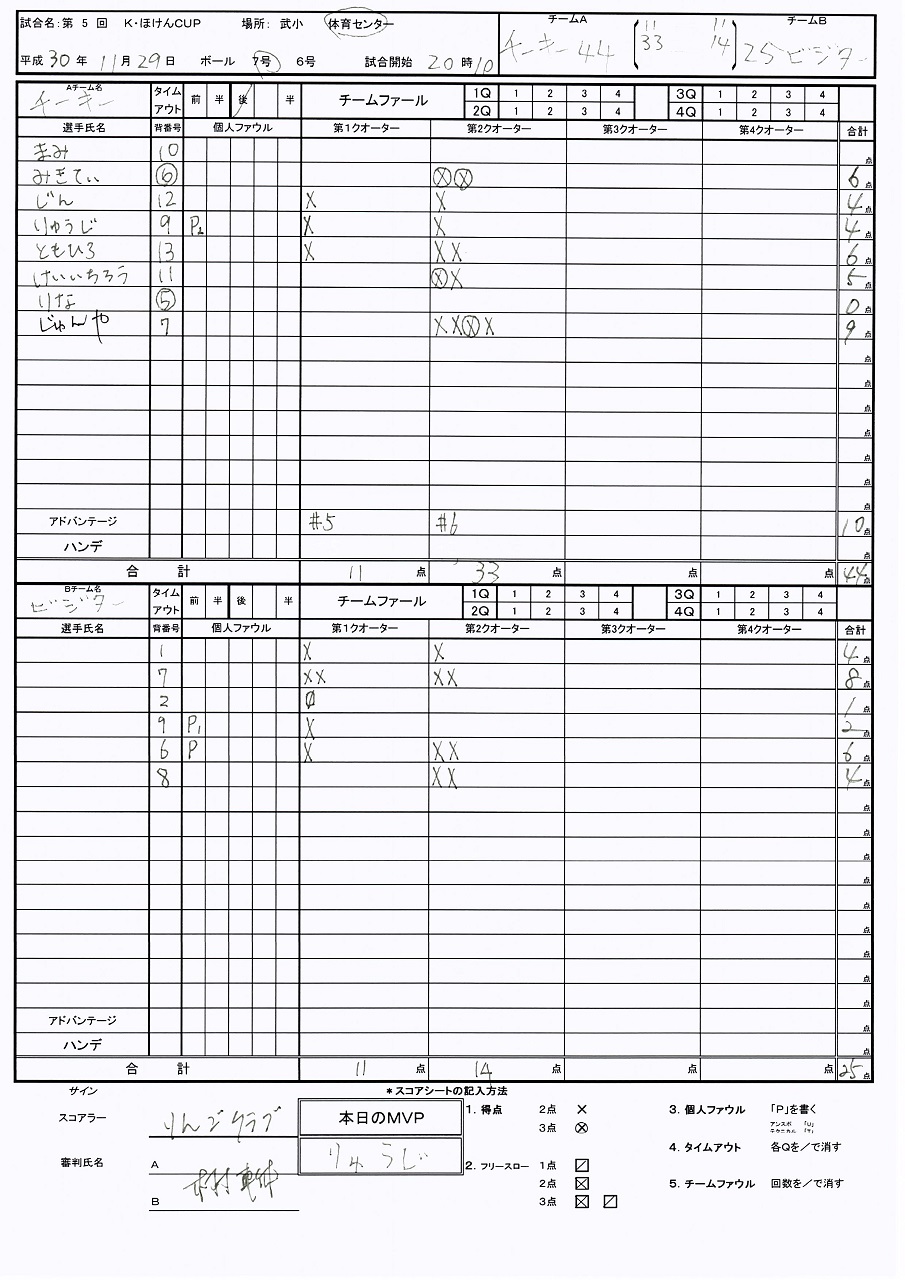 試合名:第 5 回 K・ほけんCUP 場所: 武小 体育センター
平成 30 年 11 月 29 日 ボール 7号 6号 試合開始 20 時 10
チームA チームB
チーキー 44 ( 11 11 33 14 ) 25 ビジター
Aチーム名 チーキー タイムアウト 前 半 後 半 チームファール 1Q 1 2 3 4 3Q 1 2 3 4
2Q 1 2 3 4 4Q 1 2 3 4
選手氏名 背番号 個人ファウル 第1クオーター 第2クオーター 第3クオーター 第4クオーター 合計
まみ 10 点
みきてぃ ⑥ ⓧⓧ 6点
じん 12 X X 4点
りゅうじ 9 P2 X X 4点
ともひろ 13 X XX 6点
けいいちろう 11 ⓧX 5点
りな ⑤ 0点
じゅんや 7 XXⓧX 9点
点
点
点
点
点
点
点
アドバンテージ #5 #6 10点
ハンデ 点
合 計 11 点 33 点 点 点 44点
Bチーム名 ビジター タイムアウト 前 半 後 半 チームファール 1Q 1 2 3 4 3Q 1 2 3 4
2Q 1 2 3 4 4Q 1 2 3 4
選手氏名 背番号 個人ファウル 第1クオーター 第2クオーター 第3クオーター 第4クオーター 合計
1 X X 4点
7 XX XX 8点
2 Ø 1点
9 P1 X 2点
6 P X XX 6点
8 XX 4点
点
点
点
点
点
点
点
点
点
アドバンテージ 点
ハンデ 点
合 計 11 点 14 点 点 点 25点
サイン
スコアラー りんごクラブ
審判氏名 A
B
本日のMVP
りゅうじ
*スコアシートの記入方法
1. 得点 2点 ×
3点 ⓧ
2. フリースロー 1点 ⧄
2点 ☒
3点 ☒ ⧄
3. 個人ファウル 「P」を書く
アンスポ 「U」
テクニカル 「T」
4. タイムアウト 各Qを/で消す
5. チームファウル 回数を/で消す